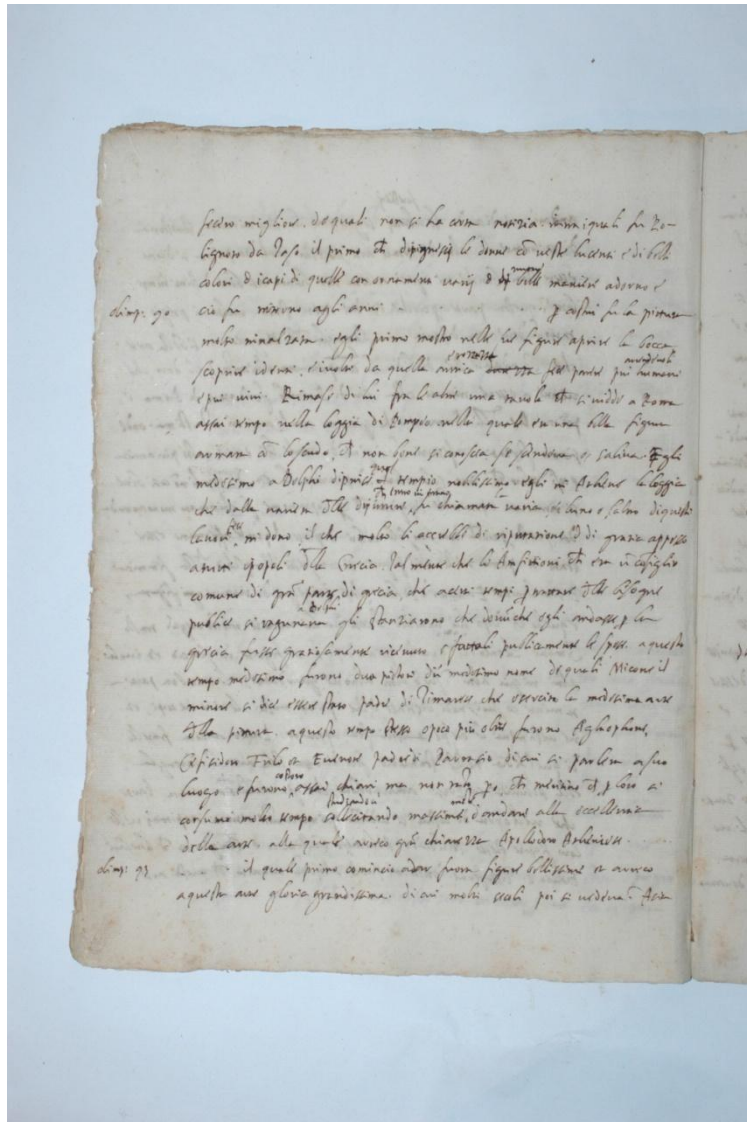 fecero migliore. de quali non si ha certa notizia. infra i quali fu Po-
lignoto da Taso il primo che dipignesse le donne con veste lucenti e di belli
colori & i capi di quelle con ornamenti varii & di belle maniere adorno e
olimp: 90 ciò fu intorno agli anni . . . . p costui fu la pittura
molto innalzata. egli primo mostro nelle sue figure aprire la bocca
scoprire i denti, e i volti da quella antica rozzezza fece parere piu
e piu vivi. Rimase di lui fra le altre una tavola che si vidde a Roma
assai tempo nella loggia di Pompeo nella quale era una bella figura
armata con lo scudo, che non bene si conosceva se scendeva o saliva. Egli
medesimo a Delpho dipinse quel tempio nobilissimo egli in Athene la loggia
che dalla varietà delle dipinture, che v'erano fu chiamata la varia, e l'uno e l'altro di questi
lavori fece in dono, il che molto li accrebbe di riputazione & di grazia appresso
a tutti i popoli della Grecia. Talmente che li Anfitioni che era un consiglio
comune di gran parte di grecia, che a certi tempi p trattare delle bisogne
publice si ragunava gli stanziarono che dovunche egli andasse p la
grecia fusse graziosamente ricevuto e fattoli publicamente le spese. a questo
tempo medesimo furono dua pittori d'un medesimo nome de quali Micone il
minore si dice essere stato padre di Timarete che esercitò la medesima arte
della pittura. a questo tempo stesso o poco piu oltre furono Aglaophone,
Cefisodoro Frilo et Evenore padre di Parrasio di cui si parlera a suo
luogo e furono costoro assai chiari ma non tanto pò che meritino che p loro si
consumi molto tempo studiandoci massime d'andare alla eccellenza
della arte. alla quale arreco gran chiarezza Apollodoro Atheniese.
olimp: 93 . . . . il quale primo comincio a dar fuora figure bellissime et arreco
a questa arte gloria grandissima. di cui molti secoli poi si vedeva in Asia